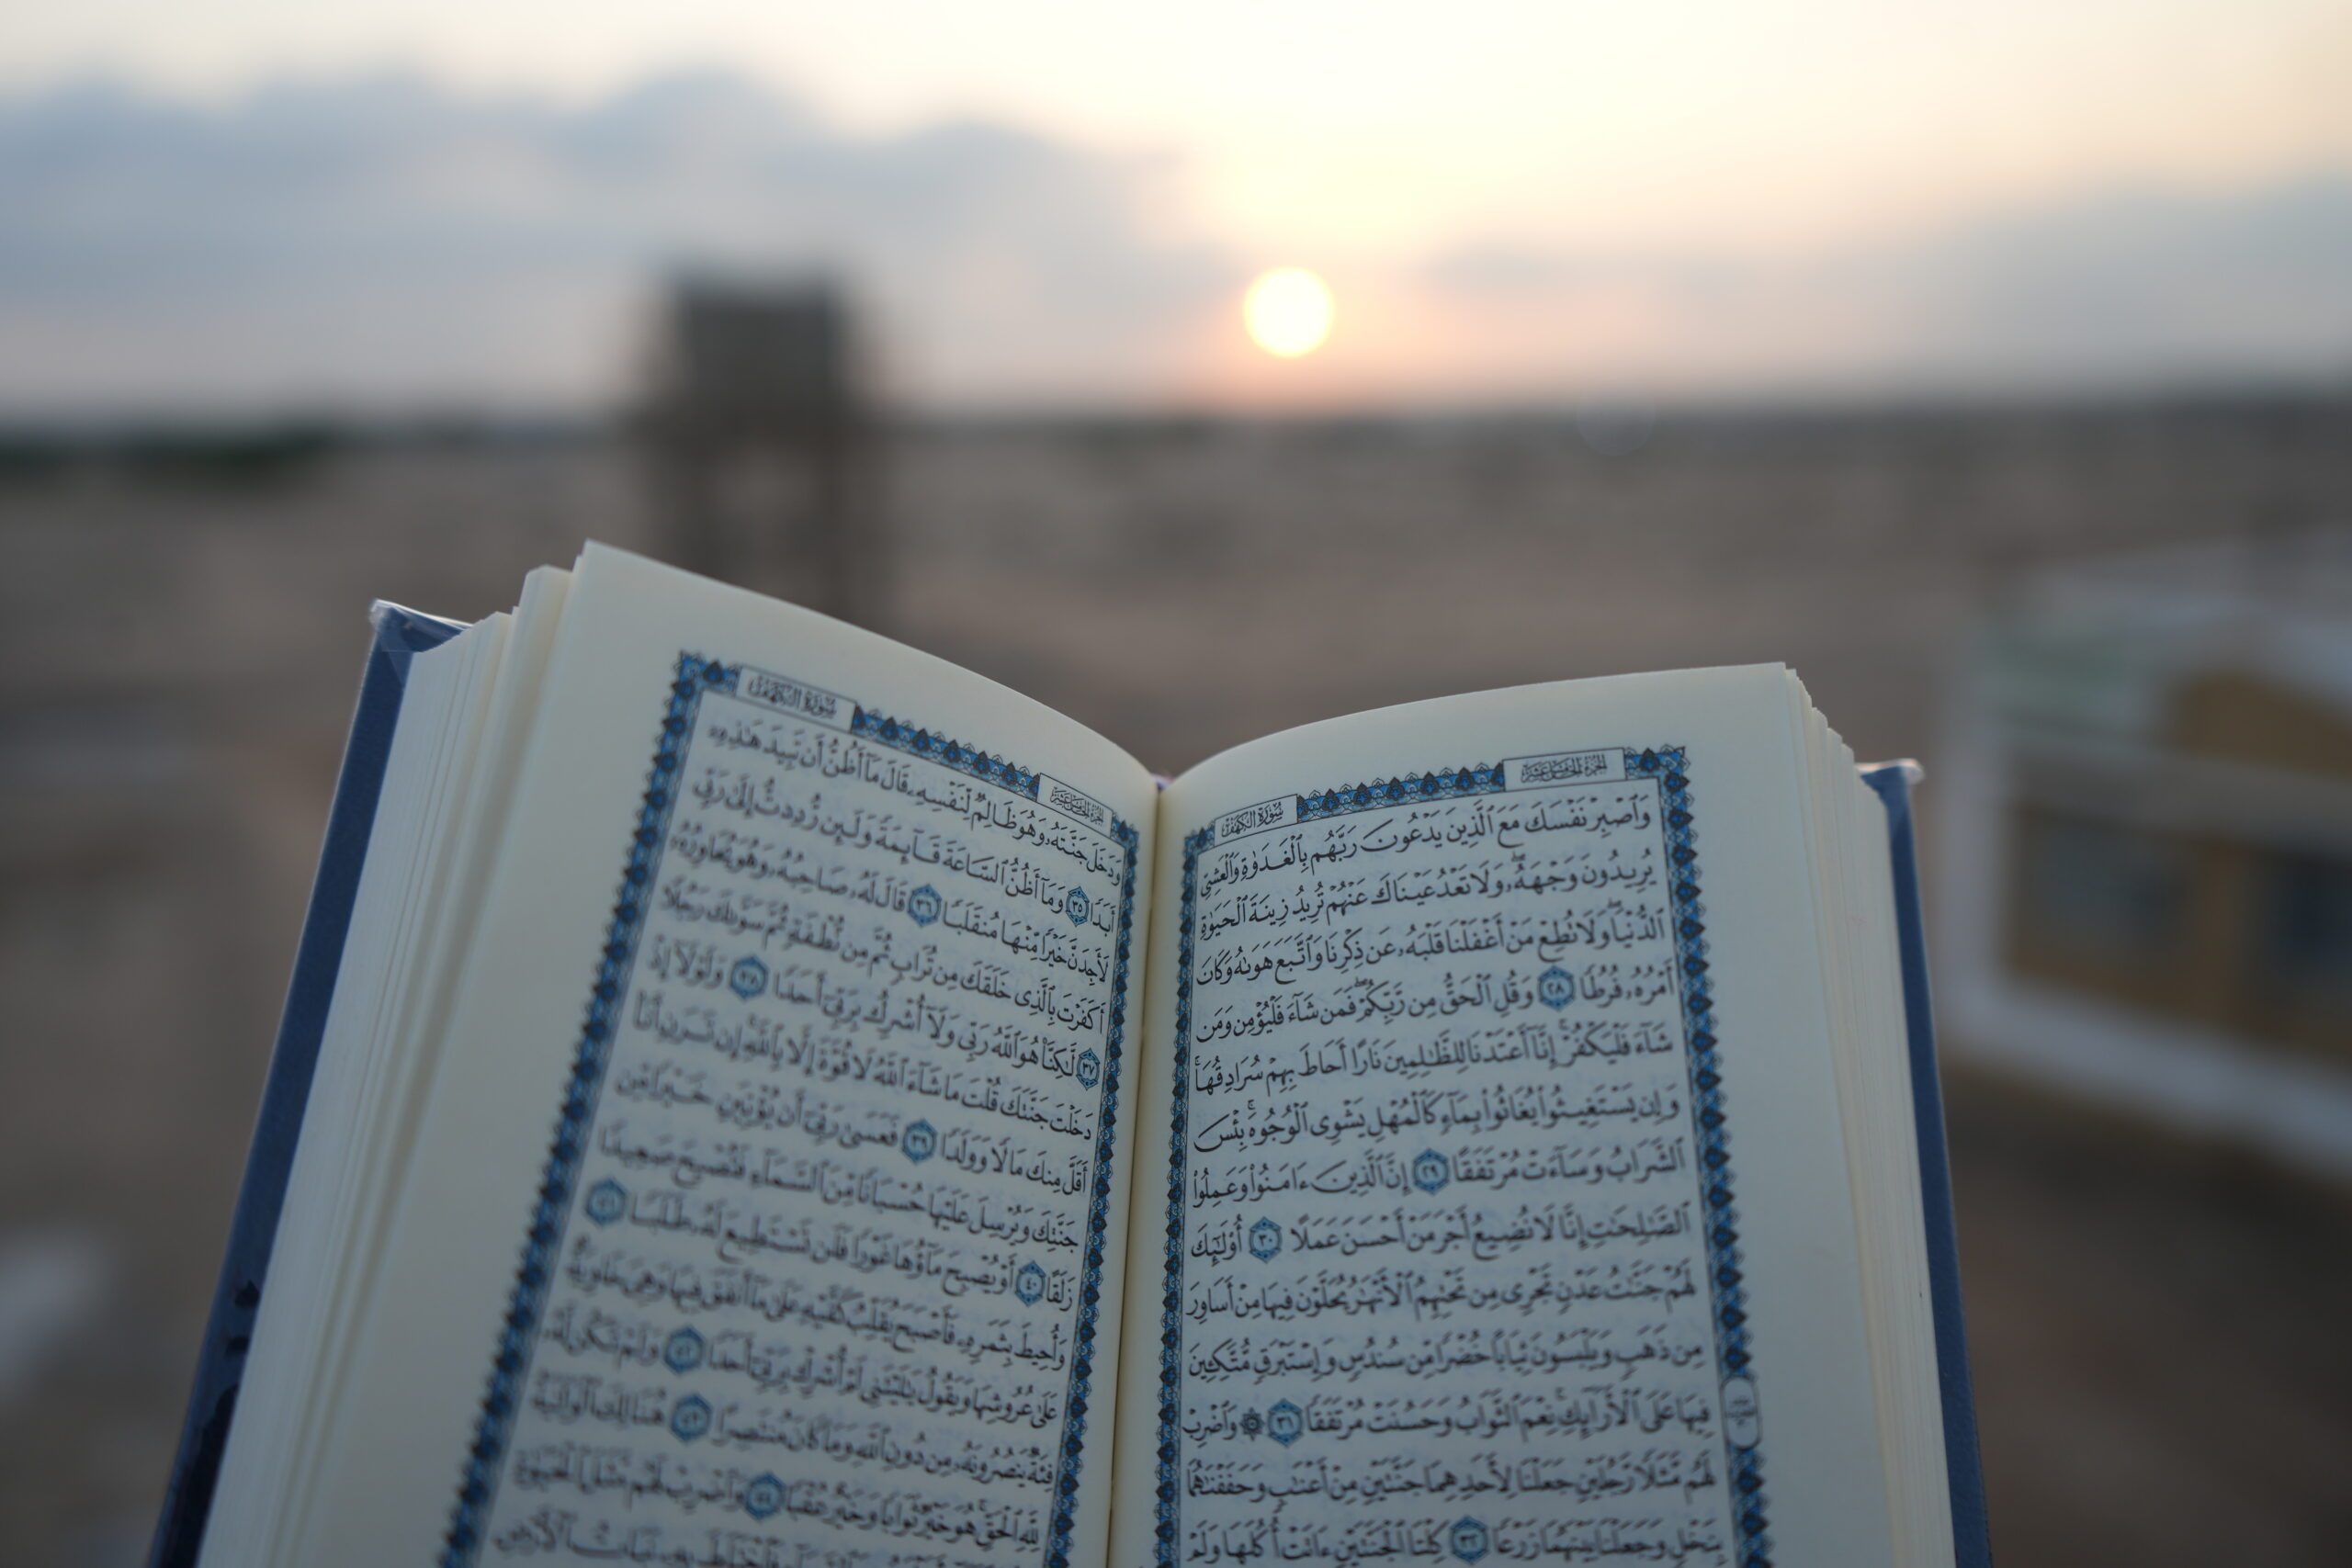 سُورَةُ الكَهْفِ
الجُزْءُ الخَامِسَ عَشَرَ
وَٱصْبِرْ نَفْسَكَ مَعَ ٱلَّذِينَ يَدْعُونَ رَبَّهُم بِٱلْغَدَوٰةِ وَٱلْعَشِىِّ
يُرِيدُونَ وَجْهَهُۥۖ وَلَا تَعْدُ عَيْنَاكَ عَنْهُمْ تُرِيدُ زِينَةَ ٱلْحَيَوٰةِ
ٱلدُّنْيَاۖ وَلَا تُطِعْ مَنْ أَغْفَلْنَا قَلْبَهُۥ عَن ذِكْرِنَا وَٱتَّبَعَ هَوَىٰهُ وَكَانَ
أَمْرُهُۥ فُرُطًا ٢٨ وَقُلِ ٱلْحَقُّ مِن رَّبِّكُمْۖ فَمَن شَآءَ فَلْيُؤْمِن وَمَن
شَآءَ فَلْيَكْفُرْۚ إِنَّآ أَعْتَدْنَا لِلظَّٰلِمِينَ نَارًا أَحَاطَ بِهِمْ سُرَادِقُهَاۚ
وَإِن يَسْتَغِيثُوا۟ يُغَاثُوا۟ بِمَآءٍ كَٱلْمُهْلِ يَشْوِى ٱلْوُجُوهَۚ بِئْسَ
ٱلشَّرَابُ وَسَآءَتْ مُرْتَفَقًا ٢٩ إِنَّ ٱلَّذِينَ ءَامَنُوا۟ وَعَمِلُوا۟
ٱلصَّٰلِحَٰتِ إِنَّا لَا نُضِيعُ أَجْرَ مَنْ أَحْسَنَ عَمَلًا ٣٠ أُو۟لَٰٓئِكَ
لَهُمْ جَنَّٰتُ عَدْنٍ تَجْرِى مِن تَحْتِهِمُ ٱلْأَنْهَٰرُ يُحَلَّوْنَ فِيهَا مِنْ أَسَاوِرَ
مِن ذَهَبٍ وَيَلْبَسُونَ ثِيَابًا خُضْرًا مِّن سُندُسٍ وَإِسْتَبْرَقٍ مُّتَّكِـِٔينَ
فِيهَا عَلَى ٱلْأَرَآئِكِۚ نِعْمَ ٱلثَّوَابُ وَحَسُنَتْ مُرْتَفَقًا ٣١ ۞ وَٱضْرِبْ
لَهُم مَّثَلًا رَّجُلَيْنِ جَعَلْنَا لِأَحَدِهِمَا جَنَّتَيْنِ مِنْ أَعْنَٰبٍ وَحَفَفْنَٰهُمَا
بِنَخْلٍ وَجَعَلْنَا بَيْنَهُمَا زَرْعًا ٣٢ كِلْتَا ٱلْجَنَّتَيْنِ ءَاتَتْ أُكُلَهَا وَلَمْ
الجُزْءُ الخَامِسَ عَشَرَ
سُورَةُ الكَهْفِ
وَدَخَلَ جَنَّتَهُۥ وَهُوَ ظَالِمٌ لِّنَفْسِهِۦ قَالَ مَآ أَظُنُّ أَن تَبِيدَ هَٰذِهِۦٓ
أَبَدًا ٣٥ وَمَآ أَظُنُّ ٱلسَّاعَةَ قَآئِمَةً وَلَئِن رُّدِدتُّ إِلَىٰ رَبِّى
لَأَجِدَنَّ خَيْرًا مِّنْهَا مُنقَلَبًا ٣٦ قَالَ لَهُۥ صَاحِبُهُۥ وَهُوَ يُحَاوِرُهُۥٓ
أَكَفَرْتَ بِٱلَّذِى خَلَقَكَ مِن تُرَابٍ ثُمَّ مِن نُّطْفَةٍ ثُمَّ سَوَّىٰكَ رَجُلًا
٣٧ لَّٰكِنَّا۠ هُوَ ٱللَّهُ رَبِّى وَلَآ أُشْرِكُ بِرَبِّىٓ أَحَدًا ٣٨ وَلَوْلَآ إِذْ
دَخَلْتَ جَنَّتَكَ قُلْتَ مَا شَآءَ ٱللَّهُ لَا قُوَّةَ إِلَّا بِٱللَّهِۚ إِن تَرَنِ أَنَا۠
أَقَلَّ مِنكَ مَالًا وَوَلَدًا ٣٩ فَعَسَىٰ رَبِّىٓ أَن يُؤْتِيَنِ خَيْرًا مِّن
جَنَّتِكَ وَيُرْسِلَ عَلَيْهَا حُسْبَانًا مِّنَ ٱلسَّمَآءِ فَتُصْبِحَ صَعِيدًا
زَلَقًا ٤٠ أَوْ يُصْبِحَ مَآؤُهَا غَوْرًا فَلَن تَسْتَطِيعَ لَهُۥ طَلَبًا ٤١
وَأُحِيطَ بِثَمَرِهِۦ فَأَصْبَحَ يُقَلِّبُ كَفَّيْهِ عَلَىٰ مَآ أَنفَقَ فِيهَا وَهِىَ خَاوِيَةٌ
عَلَىٰ عُرُوشِهَا وَيَقُولُ يَٰلَيْتَنِى لَمْ أُشْرِكْ بِرَبِّىٓ أَحَدًا ٤٢ وَلَمْ تَكُن لَّهُۥ
فِئَةٌ يَنصُرُونَهُۥ مِن دُونِ ٱللَّهِ وَمَا كَانَ مُنتَصِرًا ٤٣ هُنَالِكَ ٱلْوَلَٰيَةُ
لِلَّهِ ٱلْحَقِّۚ هُوَ خَيْرٌ ثَوَابًا وَخَيْرٌ عُقْبًا ٤٤ وَٱضْرِبْ لَهُم مَّثَلَ ٱلْحَيَوٰةِ
نَبَاتُ ٱلْأَرْضِ